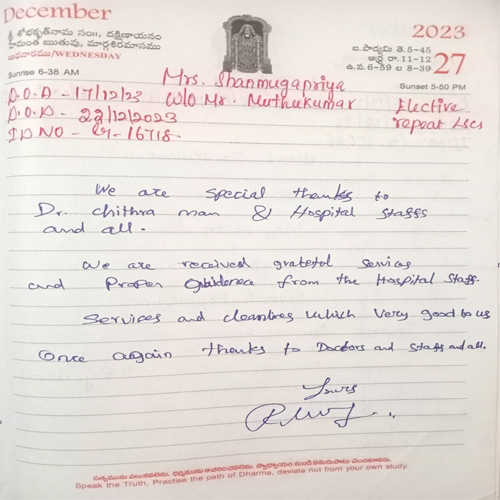 December
శ్రీ శోభకృత్‌నామ సం॥, దక్షిణాయనం
హేమంత ఋతువు, మార్గశిరమాసము
బుధవారము/WEDNESDAY
Sunrise 6-38 AM
2023
ఐ.పాడ్యమి తె.5-45
ఆర్ద్ర రా.11-12
ఉ.వ.6-59 ల 8-39
27
Sunset 5-50 PM
Mrs. Shanmugapriya
D.O.A - 17/12/23 W/O Mr. Muthukumar
D.O.D - 22/12/2023
Elective
repeat LSCS
IP NO - - 16718-
We are special thanks to
Dr. chithra man & Hospital staffs
and all.
We are received grateful services
and Proper Guidence from the Hospital Staff.
Services and cleanlines which very good to us
Once again thanks to Doctors and Staffs and all.
Yours
సత్యమును పలుకవలెను. ధర్మమును ఆచరించవలెను. స్వాధ్యాయం నుండి ఏమరుపాటు చెందకూడదు.
Speak the Truth, Practise the path of Dharma, deviate not from your own study.